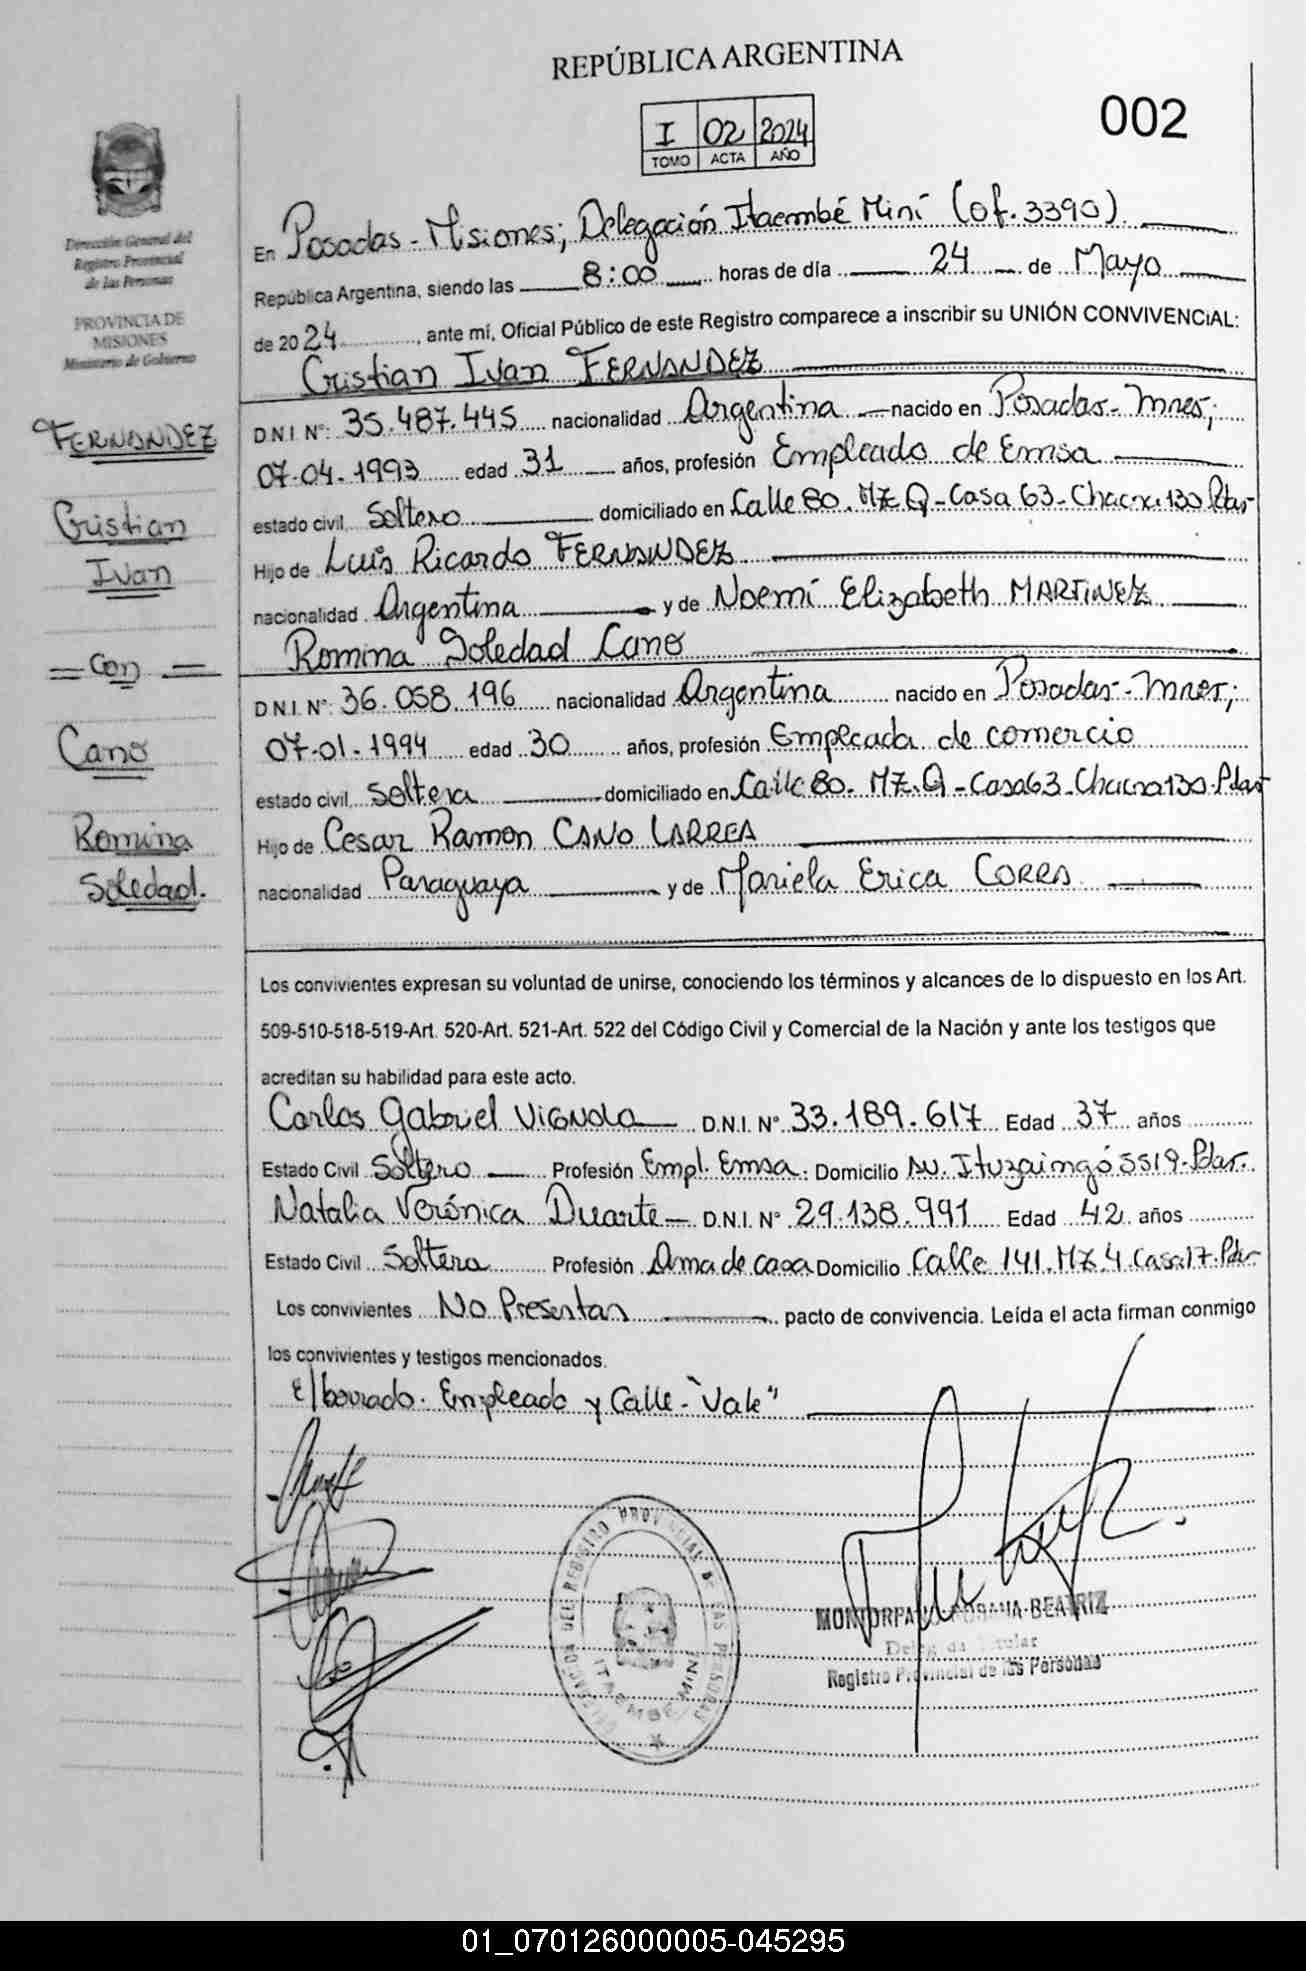 REPÚBLICA ARGENTINA
002
I 02 2024
TOMO ACTA AÑO
Dirección General del
Registro Provincial
de las Personas
PROVINCIA DE
MISIONES
Ministerio de Gobierno
En Posadas - Misiones; Delegación Itaembé Miní (of. 3390).
República Argentina, siendo las 8:00 horas de día 24 de Mayo
de 2024, ante mí, Oficial Público de este Registro comparece a inscribir su UNIÓN CONVIVENCIAL:
Cristian Ivan FERNANDEZ
D.N.I. N°: 35.487.445 nacionalidad Argentina nacido en Posadas - Mnes;
07-04-1993 edad 31 años, profesión Empleado de Emsa
estado civil Soltero domiciliado en Calle 80. Mz Q - Casa 63 - Chacra 130 Pdas
Hijo de Luis Ricardo FERNANDEZ
nacionalidad Argentina y de Noemí Elizabeth MARTINEZ
Romina Soledad Cano
D.N.I. N°: 36.058.196 nacionalidad Argentina nacido en Posadas - Mnes;
07-01-1994 edad 30 años, profesión Empleada de comercio
estado civil Soltera domiciliado en Calle 80. Mz. Q - Casa 63 - Chacra 130 - Pdas
Hijo de Cesar Ramon CANO LARREA
nacionalidad Paraguaya y de Mariela Erica CORRA
FERNANDEZ
Cristian
Ivan
= Con =
Cano
Romina
Soledad.
Los convivientes expresan su voluntad de unirse, conociendo los términos y alcances de lo dispuesto en los Art.
509-510-518-519-Art. 520-Art. 521-Art. 522 del Código Civil y Comercial de la Nación y ante los testigos que
acreditan su habilidad para este acto.
Carlos Gabriel VIGNOLA D.N.I. N° 33.189.617 Edad 37 años
Estado Civil Soltero Profesión Empl. Emsa. Domicilio Av. Ituzaingó 5519 - Pdas.
Natalia Verónica Duarte D.N.I. N° 29.138.991 Edad 42 años
Estado Civil Soltera Profesión Ama de casa Domicilio Calle 141. Mz. 4. Casa 17 - Pdas
Los convivientes No Presentan pacto de convivencia. Leída el acta firman conmigo
los convivientes y testigos mencionados.
E/borrado. Empleado y Calle - "Vale"
DEL REGISTRO PROVINCIAL DE LAS PERSONAS
ITAEMBE MINI
BEATRIZ
Registro Provincial de las Personas
01_070126000005-045295